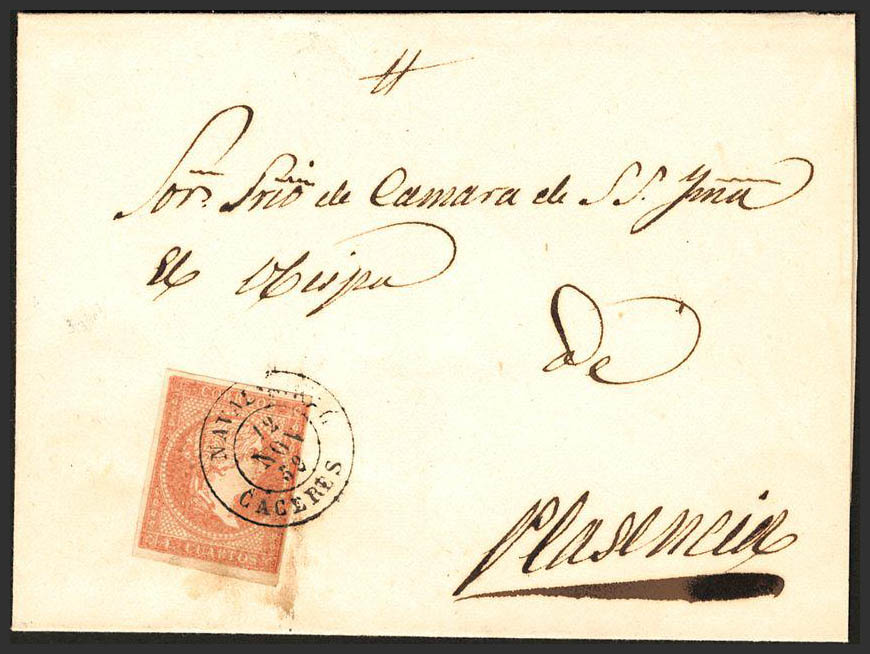 Sor. Srio de Camara de S. S. Yma
El Obispo
De
Plasencia
12
NOV
CACERES
CUARTOS